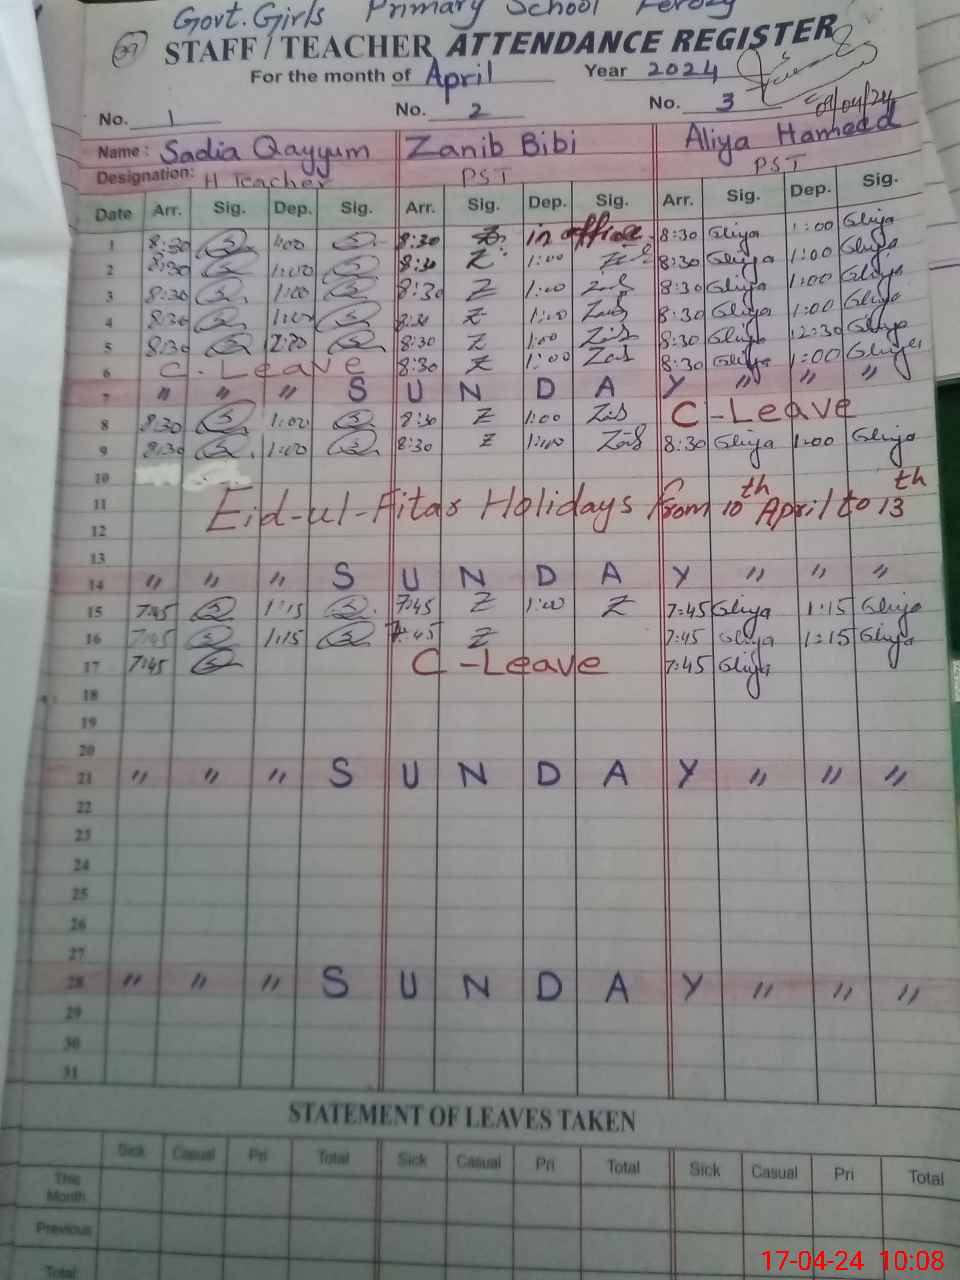 Govt. Girls Primary School
39 STAFF / TEACHER ATTENDANCE REGISTER
For the month of April Year 2024
No. 1 No. 2 No. 3 09/04/24
Name: Sadia Qayyum Zanib Bibi Aliya Hameed
Designation: H Teacher PST PST
Date Arr. Sig. Dep. Sig. Arr. Sig. Dep. Sig. Arr. Sig. Dep. Sig.
1 8:30 1:00 8:30 Z in office 8:30 Aliya 1:00 Aliya
2 8:30 1:00 8:30 Z 1:00 8:30 Aliya 1:00 Aliya
3 8:30 1:00 8:30 Z 1:00 Zanib 8:30 Aliya 1:00 Aliya
4 8:30 1:00 8:30 Z 1:00 Zanib 8:30 Aliya 1:00 Aliya
5 8:30 8:30 Z 1:00 Zanib 8:30 Aliya 12:30 Aliya
6 C-Leave 8:30 Z 1:00 Zanib 8:30 Aliya 1:00 Aliya
7 " " " S U N D A Y " " "
8 8:30 1:00 8:30 Z 1:00 Zanib C-Leave
9 8:30 1:00 8:30 Z 1:00 Zanib 8:30 Aliya 1:00 Aliya
10
11 Eid-ul-Fitar Holidays from 10th April to 13th
12
13
14 " " " S U N D A Y " " "
15 7:45 1:15 7:45 Z 1:00 Z 7:45 Aliya 1:15 Aliya
16 7:45 1:15 7:45 Z 7:45 Aliya 1:15 Aliya
17 7:45 C-Leave 7:45 Aliya
18
19
20
21 " " " S U N D A Y " " "
22
23
24
25
26
27
28 " " " S U N D A Y " " "
29
30
31
STATEMENT OF LEAVES TAKEN
Sick Casual Pri Total Sick Casual Pri Total Sick Casual Pri Total
This
Month
Previous
Total
17-04-24 10:08